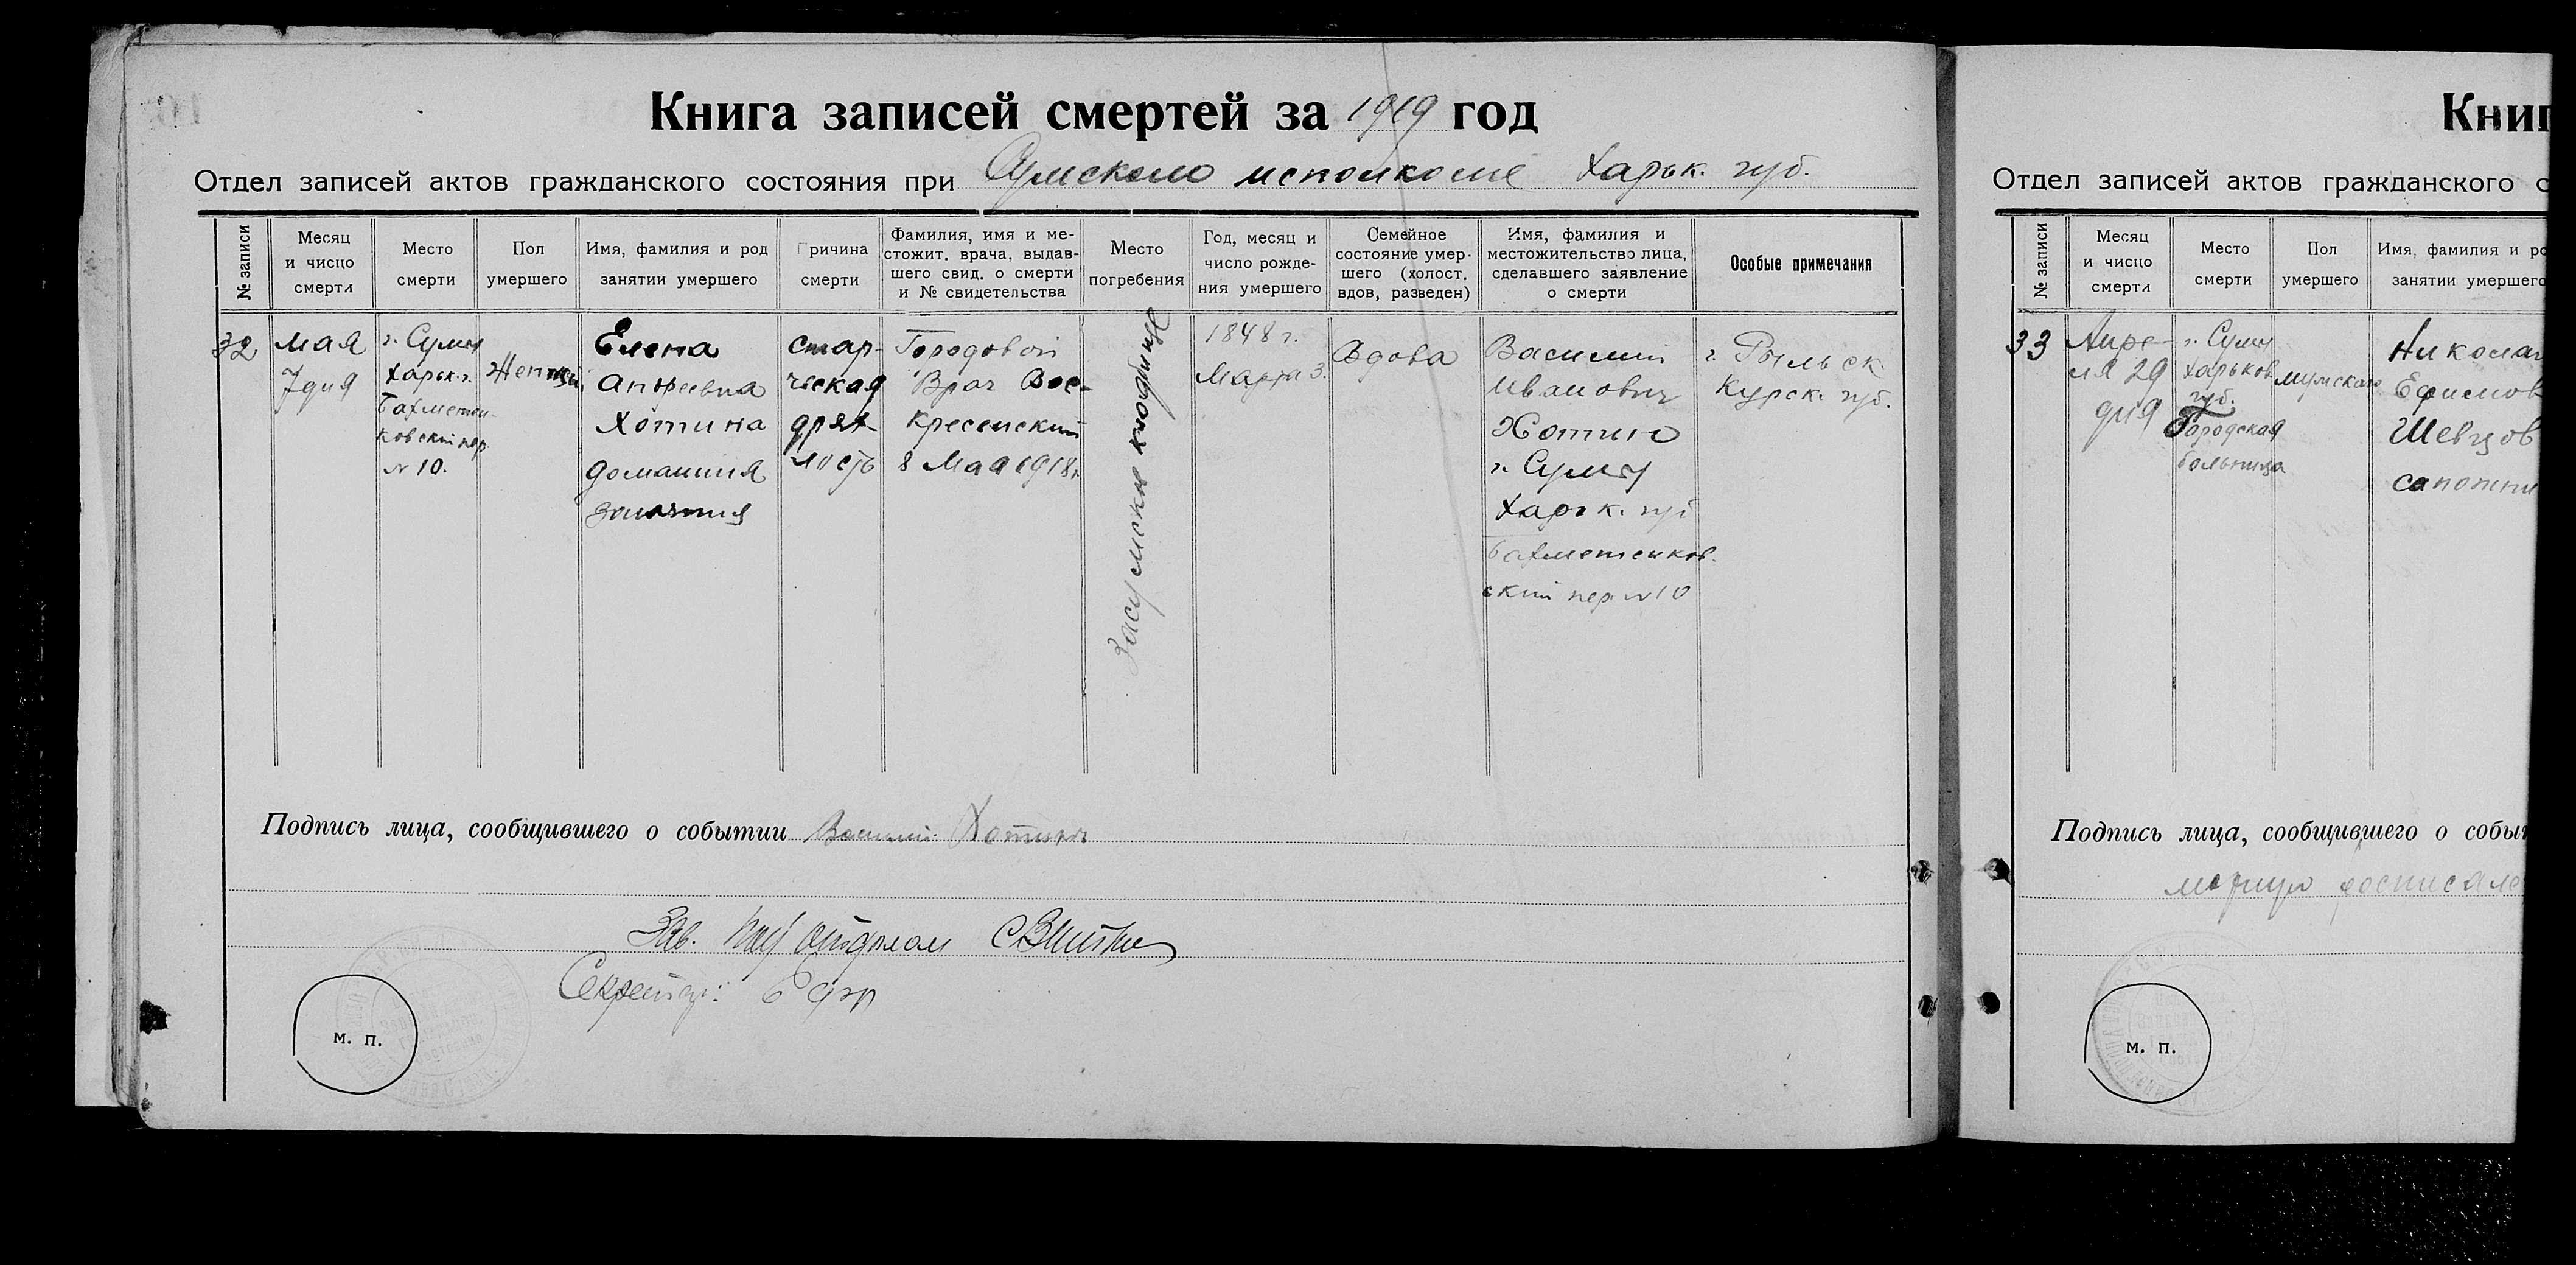 Книга записей смертей за 1919 год
Отдел записей актов гражданского состояния при Сумского исполкоме Харьк. губ.
№ записи
Месяц
и число
смерти
Место
смерти
Пол
умершего
Имя, фамилия и род
занятии умершего
Причина
смерти
Фамилия, имя и ме-
стожит. врача, выдав-
шего свид. о смерти
и № свидетельства
Место
погребения
Год, месяц и
число рожде-
ния умершего
Семейное
состояние умер-
шего (холост.
вдов, разведен)
Имя, фамилия и
местожительство лица,
сделавшего заявление
о смерти
Особые примечания
32
мая
7 дня
г. Сумы
Харьк. г.
Бахметен-
ковский пер
№ 10.
Женский
Елена
Хотина
домашния
занятия
стар-
ческая
дрях-
лость
Городовой
Врач Вос-
кресенский
8 Мая 1918 г.
Засумское кладбище
1848 г.
Марта 3.
Вдова
Василий
Иванович
Хотин
г. Сумы
Харьк. губ
Бахметенков.
ский пер. № 10
г. Рыльск.
Курск. губ.
Подпись лица, сообщившего о событии Василий Хотин
Зав. отделом
Секретарь:
М. П.
Книг
Отдел записей актов гражданского с
№ записи
Месяц
и число
смерти
Место
смерти
Пол
умершего
Имя, фамилия и ро
занятии умершего
33
Апре-
ля 29
дня
г. Сумы
Харьков
губ.
Городская
больница
мужского
Николай
Ефимов
Шевцов
сапожни
Подпись лица, сообщившего о собы
М. П.